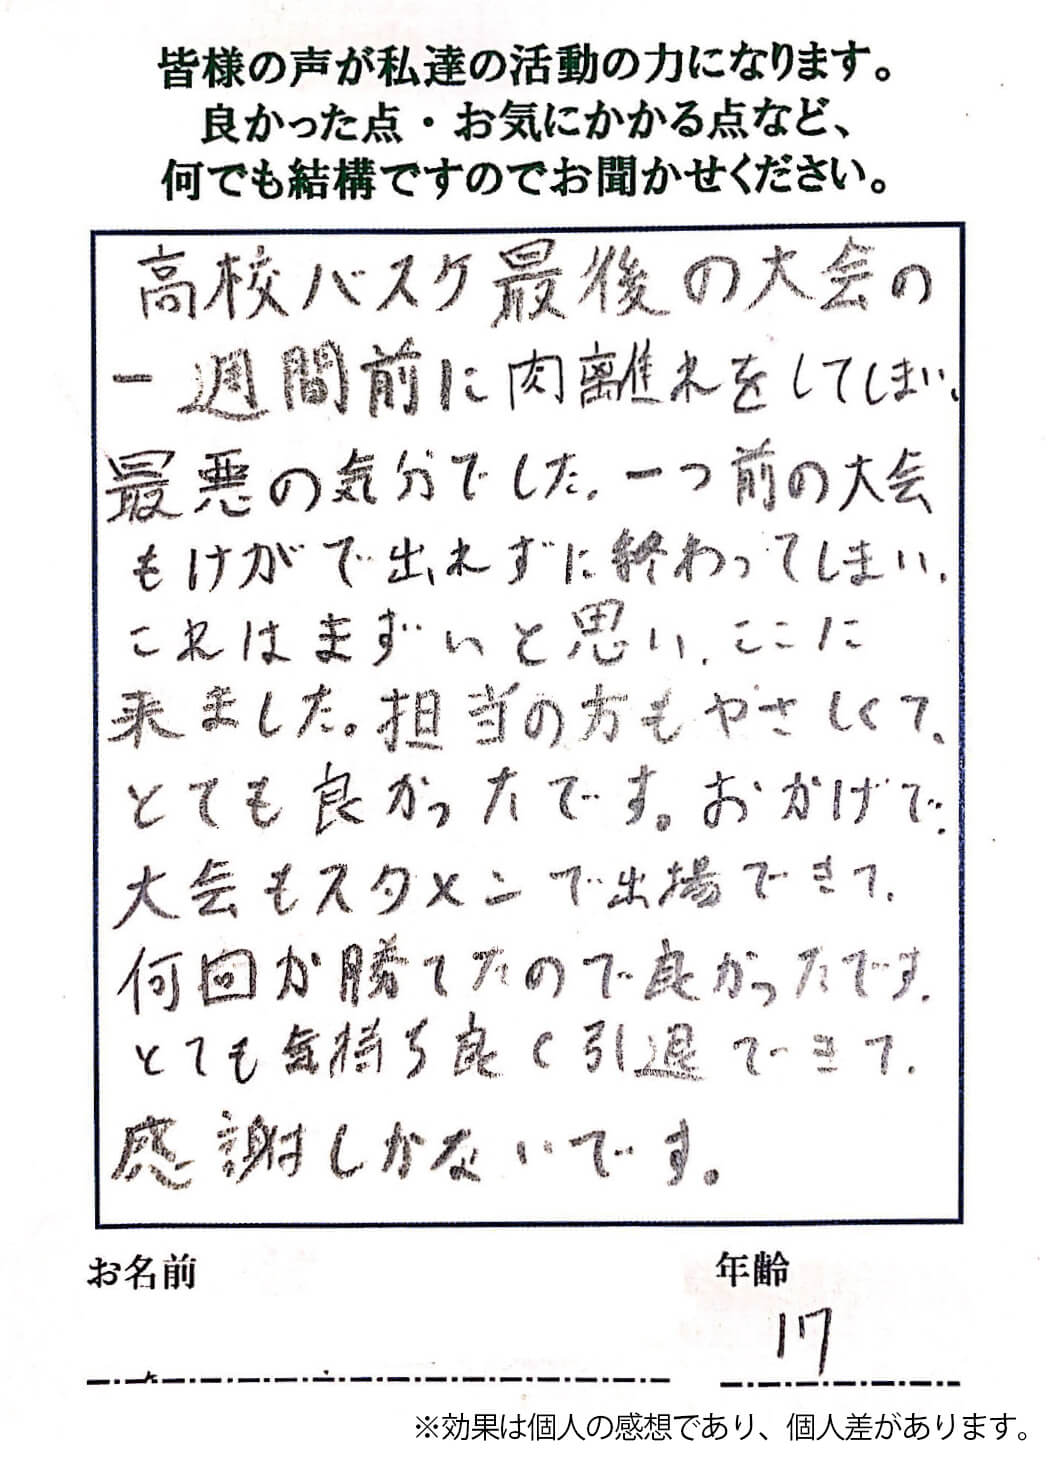 皆様の声が私達の活動の力になります。
良かった点・お気にかかる点など、
何でも結構ですのでお聞かせください。
高校バスケ最後の大会の
一週間前に肉離れをしてしまい、
最悪の気分でした。一つ前の大会
もけがで出れずに終わってしまい、
これはまずいと思い、ここに
来ました。担当の方もやさしくて、
とても良かったです。おかげで、
大会もスタメンで出場できて、
何回か勝てたので良かったです。
とても気持ち良く引退できて、
感謝しかないです。
お名前
年齢
17
※効果は個人の感想であり、個人差があります。